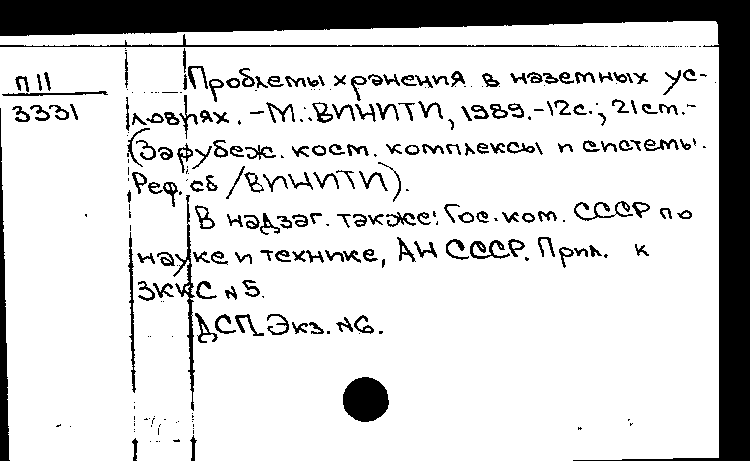 П11
3331
Проблемы хранения в наземных ус-
ловиях. - М.: ВИНИТИ, 1989. - 12с.; 21 cm. -
(Зарубеж. косм. комплексы и системы.
Реф. сб / ВИНИТИ).
В надзаг. также: Гос. ком. СССР по
науке и технике, АН СССР. Прил. к
ЗККС N 5.
ДСП. Экз. N6.